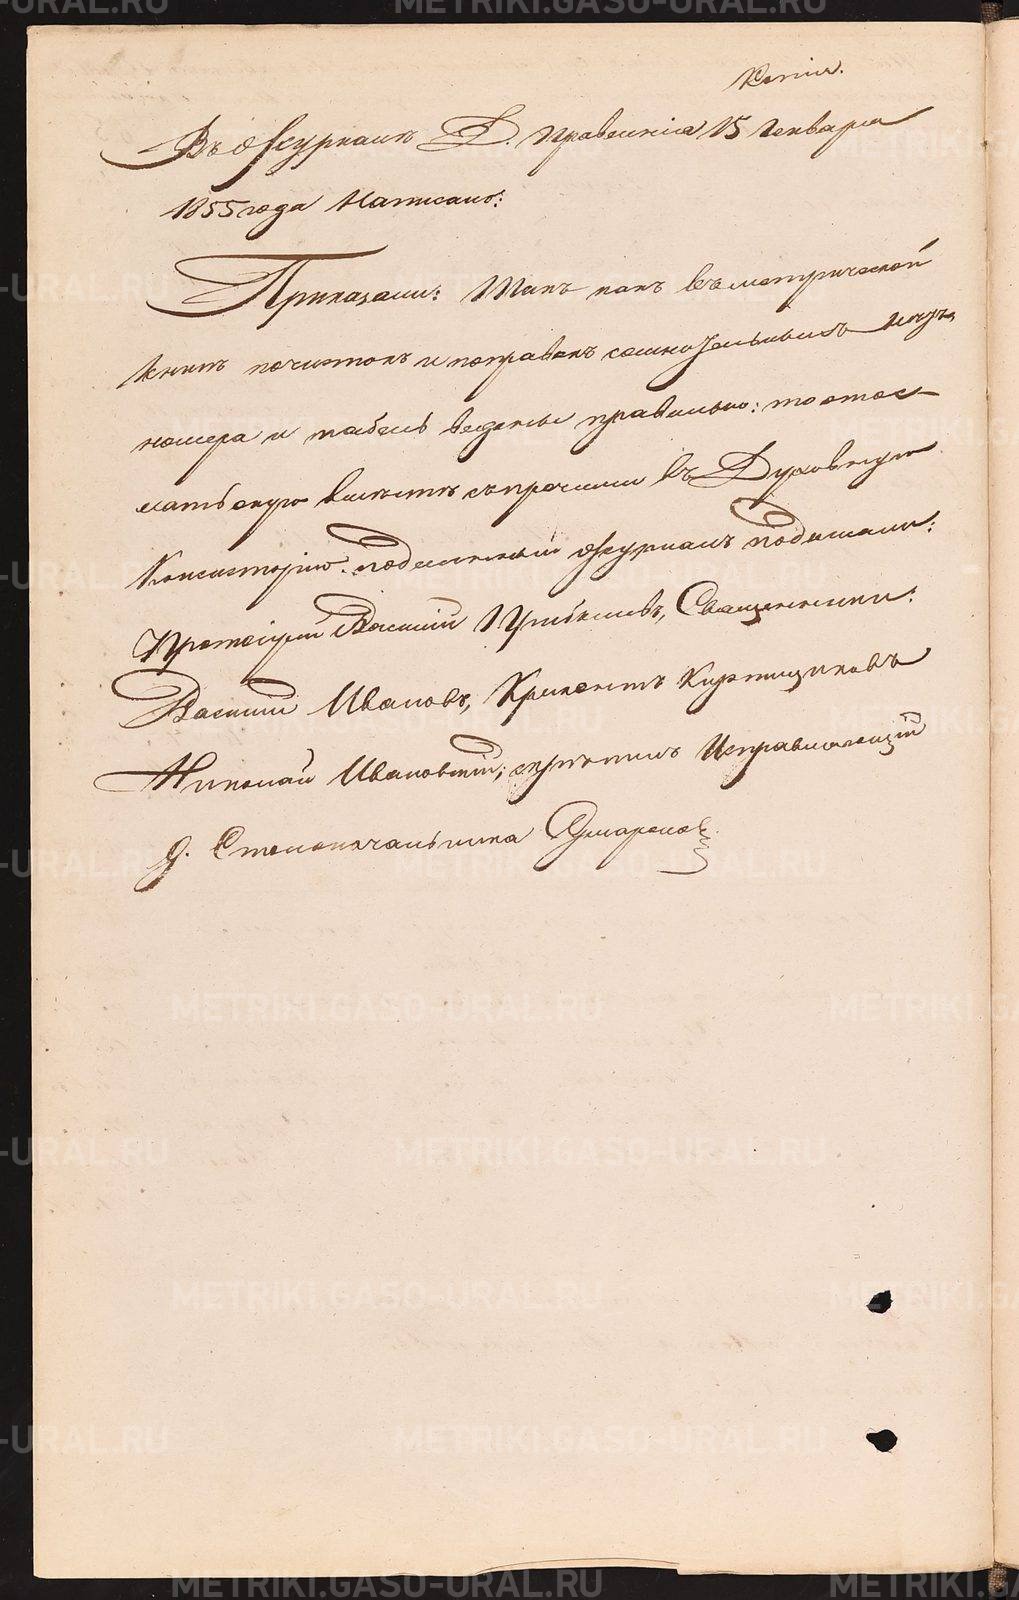 Копія.
Въ Журналѣ Д. Правленія 15 Генваря
1855 года Написано:
Приказали: Такъ какъ въ метрической
книгѣ почистокъ и поправокъ сомнительныхъ нѣтъ,
номера и табель ведены правильно: то отос-
лать оную вмѣстѣ съ прочими въ Духовную
Консисторію. подлинный Журналъ подписали:
Протоіерей Василій Прибылевъ, Священники:
Василій Ивановъ, Климентъ Кирпищиковъ
Николай Ивановскій; скрѣпилъ Исправляющій
д. Столоначальника
METRIKI.GASO-URAL.RU